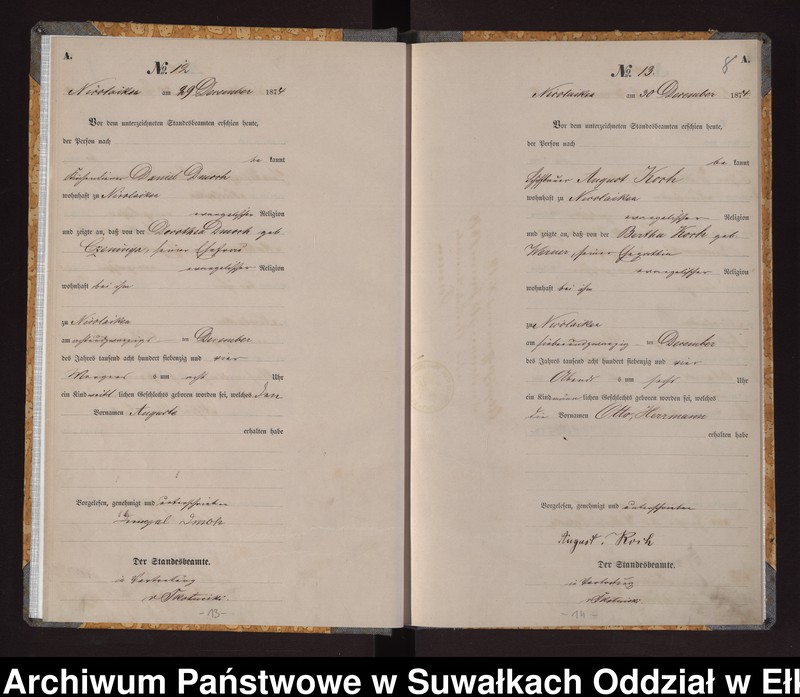 A.
No. 12.
Nicolaiken am 29 December 1874
Vor dem unterzeichneten Standesbeamten erschien heute,
der Person nach
be kannt
Daniel Dmoch
wohnhaft zu Nicolaiken
evangelischer Religion
und zeigte an, daß von der Dorothea Dmoch geb.
seiner Ehefrau
evangelischer Religion
wohnhaft bei ihm
zu Nicolaiken
am achtundzwanzigsten December
des Jahres tausend acht hundert siebenzig und vier
Morgens um acht Uhr
ein Kind weibl lichen Geschlechts geboren worden sei, welches den
Vornamen Auguste
erhalten habe
Vorgelesen, genehmigt und unterschrieben
Der Standesbeamte.
in Vertretung
-13-
8 A.
No. 13.
Nicolaiken am 30 December 1874.
Vor dem unterzeichneten Standesbeamten erschien heute,
der Person nach
be kannt
August Koch
wohnhaft zu Nicolaiken
evangelischer Religion
und zeigte an, daß von der Bertha Koch geb.
Werner, seiner Ehegattin
evangelischer Religion
wohnhaft bei ihm
zu Nicolaiken
am siebenundzwanzig December
des Jahres tausend acht hundert siebenzig und vier
Abends um sechs Uhr
ein Kind männ lichen Geschlechts geboren worden sei, welches
die Vornamen Otto, Herrmann
erhalten habe
Vorgelesen, genehmigt und unterschrieben
August Koch
Der Standesbeamte.
in Vertretung
-14-
Archiwum Państwowe w Suwałkach Oddział w Eł